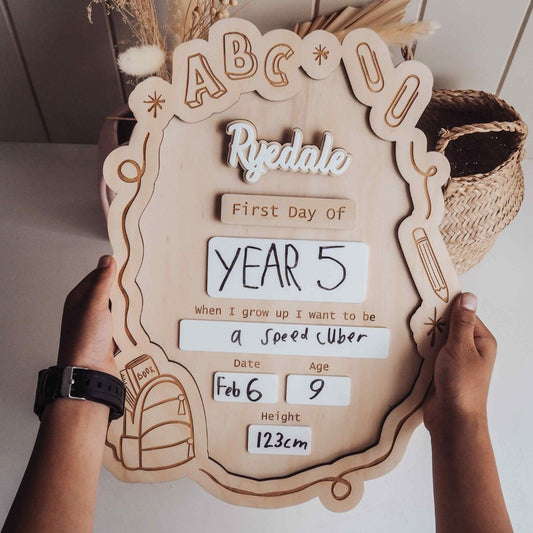 ABC
Ryedale
First Day Of
YEAR 5
When I grow up I want to be
a speed cuber
Date Age
Feb 6 9
Height
123cm